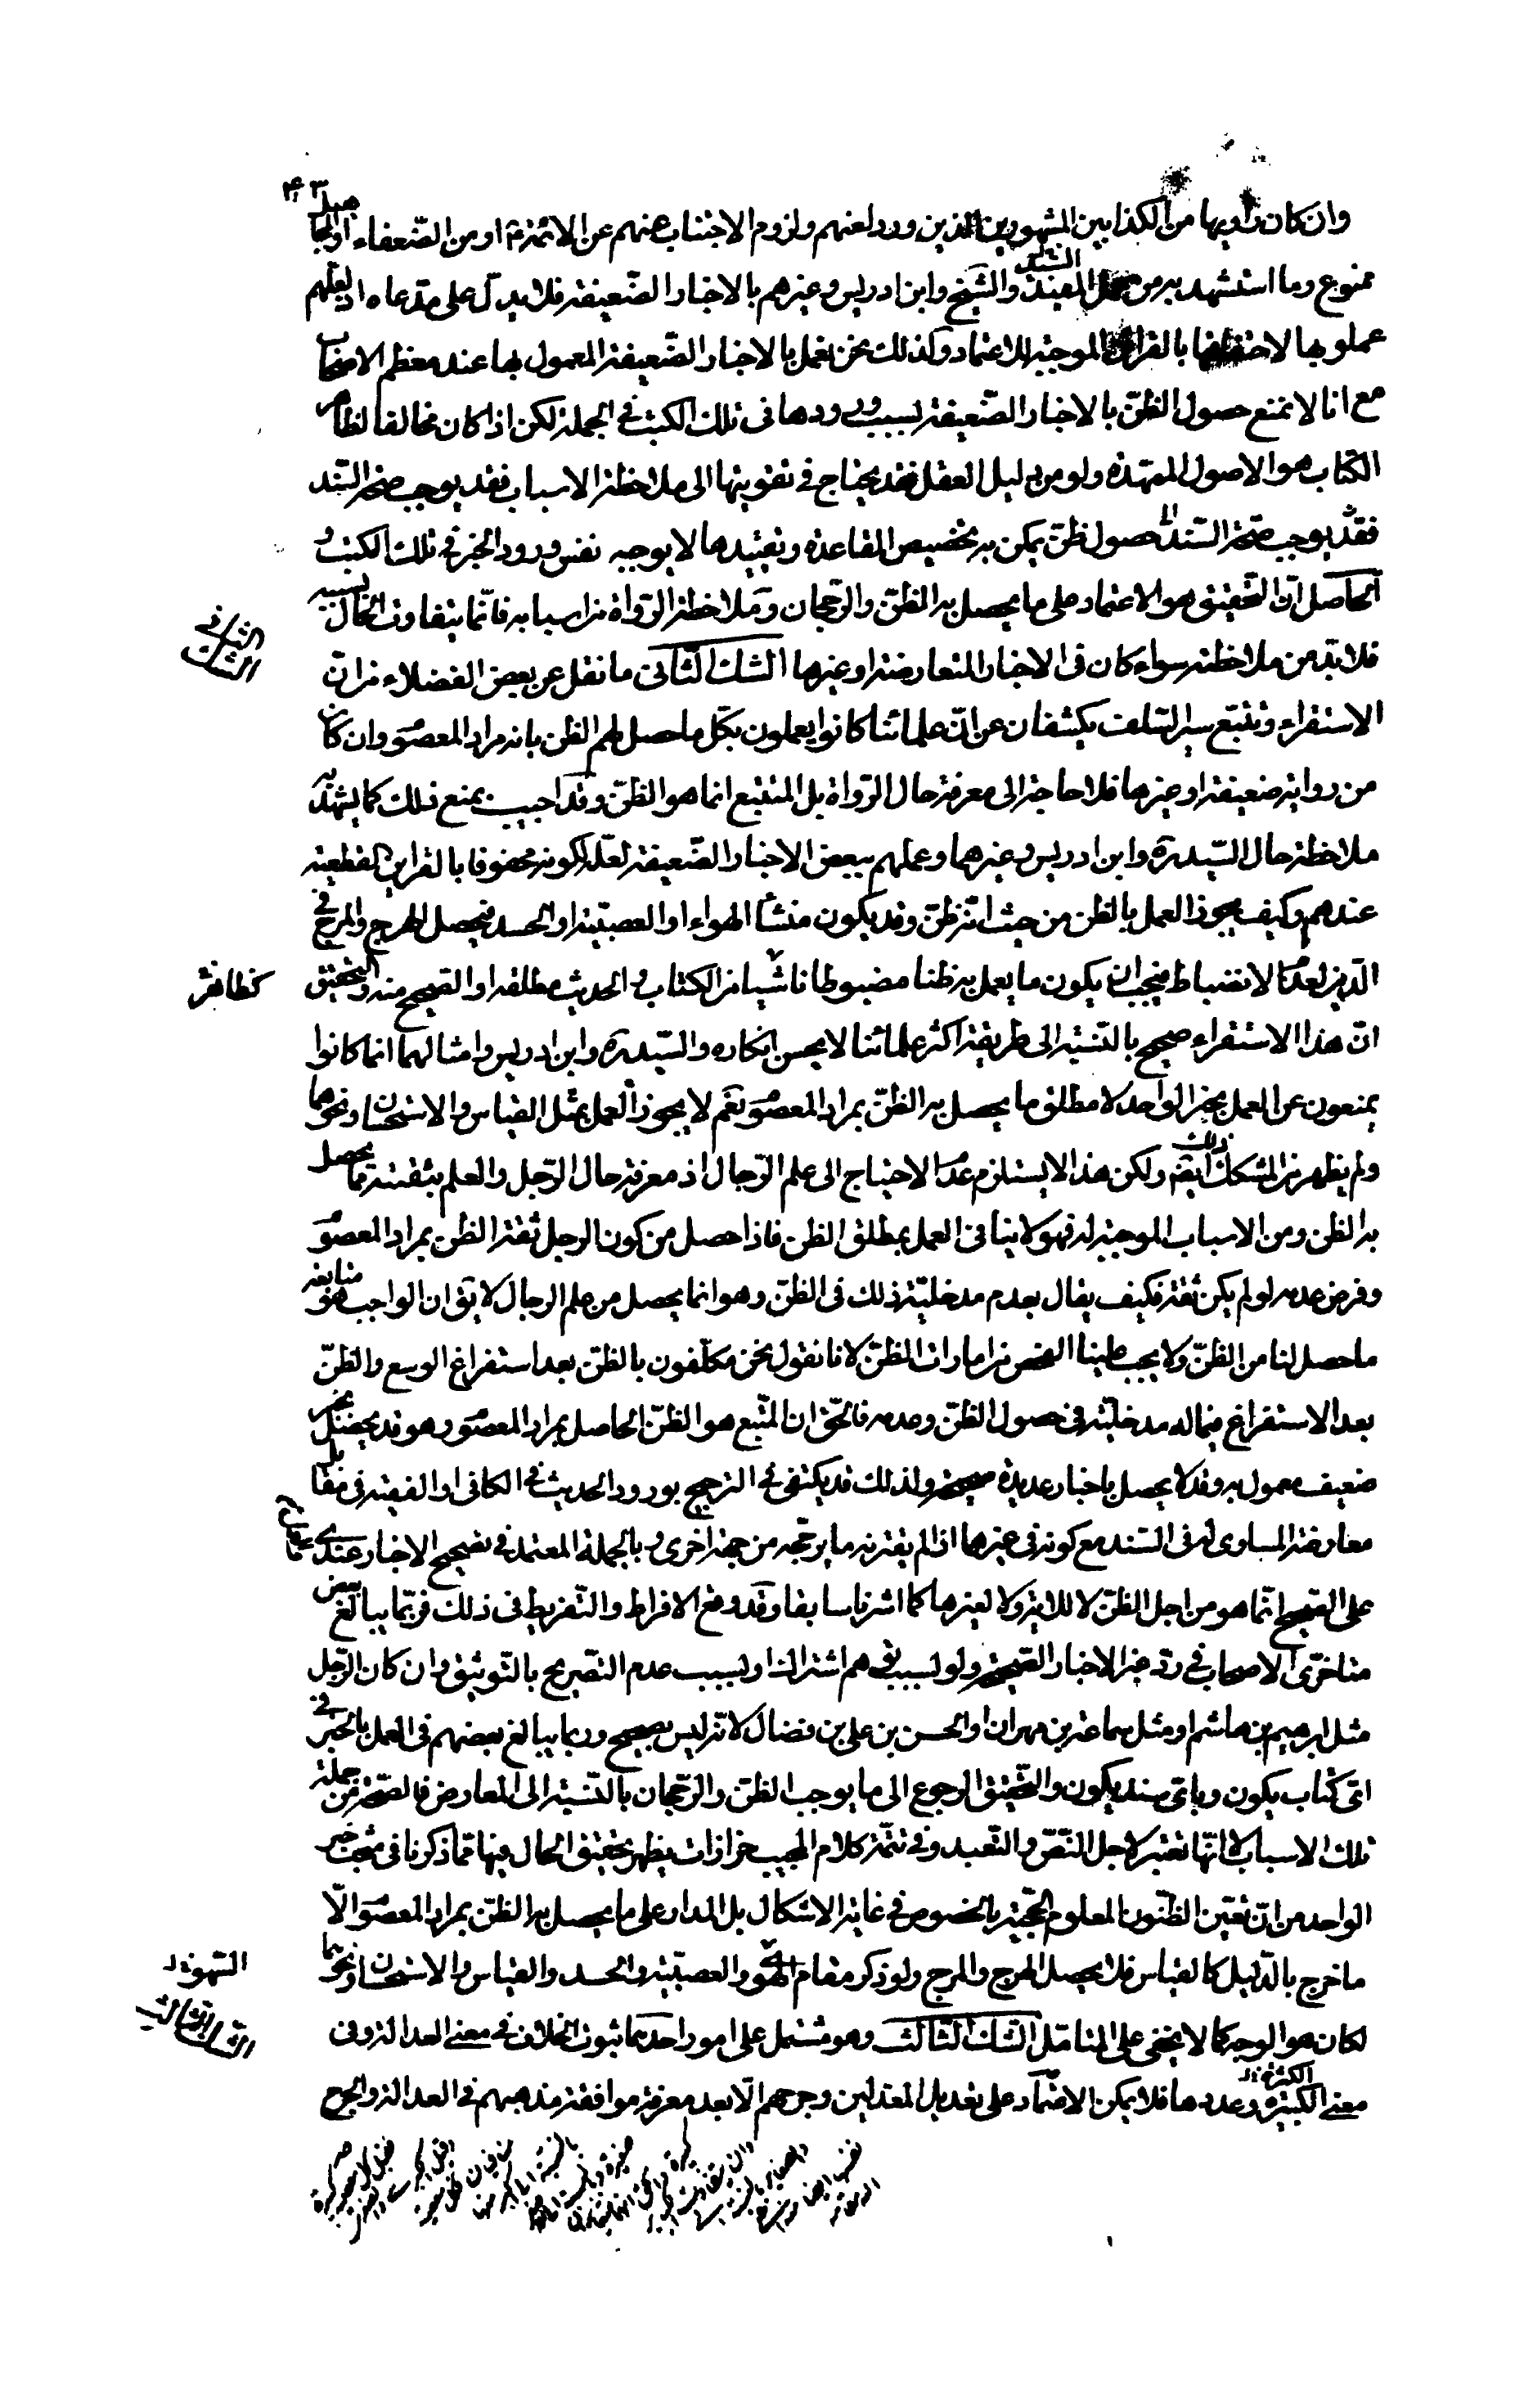 وان كان راويها من الكذابين المشهورين الذين ورد لعنهم ولزوم الاجتناب عنهم عن الائمة ع او من الضعفاء او المجاهيل
ممنوع وما استشهد به من عمل المفيد والشيخ وابن ادريس وغيرهم بالاخبار الضعيفة فلا يدل على مدعاه اذ لعلهم
عملوا بها لاحتفافها بالقرائن الموجبة للاعتماد وكذلك نحن نعمل بالاخبار الضعيفة المعمول بها عند معظم الاصحاب
مع انا لا نمنع حصول الظن بالاخبار الضعيفة بسبب ورودها في تلك الكتب في الجملة لكن اذا كان مخالفا لظاهر
الكتاب هو الاصول الممهدة ولو من دليل العقل فقد يحتاج في تقويتها الى ملاحظة الاسباب فقد يوجب صحة السند
فقد يوجب صحة السند حصول ظن يمكن به تخصيص القاعدة وتقييدها لا يوجبه نفس ورود الخبر في تلك الكتب و
الحاصل ان التحقيق هو الاعتماد على ما يحصل به الظن والرجحان وملاحظة الرواة من اسبابه فانما يتفاوت الحال بسببه
فلا بد من ملاحظته سواء كان في الاخبار المتعارضة او غيرها الشك الثاني ما نقل عن بعض الفضلاء من ان
الاستقراء وتتبع سير السلف يكشفان عن ان علمائنا كانوا يعملون بكل ما حصل لهم الظن بانه مراد المعصوم وان كان
من رواية ضعيفة او غيرها فلا حاجة الى معرفة حال الرواة بل المتتبع انما هو الظن وقد اجيب بمنع ذلك كما يشهد به
ملاحظة حال السيد ره وابن ادريس وغيرهما وعملهم ببعض الاخبار الضعيفة لعله لكونه محفوفا بالقراين القطعية
عندهم وكيف يجوز العمل بالظن من حيث انه ظن وقد يكون منشأ الهواء او العصبية او الحسد فيحصل الهرج والمرج في
الدين لعدم الانضباط فيجب ان يكون ما يعمل به ظنا مضبوطا ناشيا من الكتاب والحديث مطلقه او الصحيح منه والتحقيق
ان هذا الاستقراء صحيح بالنسبة الى طريقة اكثر علمائنا لا يحسن انكاره والسيد ره وابن ادريس وامثالهما انما كانوا
يمنعون عن العمل بخبر الواحد لا مطلق ما يحصل به الظن بمراد المعصوم نعم لا يجوز العمل بمثل القياس والاستحسان ونحوهما
ولم يظهر من المشكك ذلك ايضا ولكن هذا لا يستلزم عدم الاحتياج الى علم الرجال اذ معرفة حال الرجل والعلم بثقته مما يحصل
به الظن ومن الاسباب الموجبة له فهو لا ينافي العمل بمطلق الظن فاذا حصل من كون الرجل ثقة الظن بمراد المعصوم
وفرض عدمه لو لم يكن ثقة فكيف يقال بعدم مدخلية ذلك في الظن وهو انما يحصل من علم الرجال لا يق ان الواجب هو متابعة
ما حصل لنا من الظن ولا يجب علينا الفحص من امارات الظن لانا نقول نحن مكلفون بالظن بعد استفراغ الوسع والظن
بعد الاستفراغ فيما له مدخلية في حصول الظن وعدمه فالحق ان المتبع هو الظن الحاصل بمراد المعصوم وهو قد يحصل بخبر
ضعيف معمول به وقد لا يحصل باخبار عديدة صحيحة ولذلك قد يكتفى في الترجيح بورود الحديث في الكافي او الفقيه في مقابل
معارضة المساوي له في السند مع كونه في غيرها اذا لم يقترنه ما يرجحه من جهة اخرى وبالجملة المعتمد في تصحيح الاخبار عندي
على الصحيح انما هو من اجل الظن لا للاية ولا لغيرها كما اشرنا سابقا وقد وقع الافراط والتفريط في ذلك فربما يبالغ بعض
متاخري الاصحاب في رد غير الاخبار الصحيحة ولو بسبب توهم اشتراك او بسبب عدم التصريح بالتوثيق وان كان الرجل
مثل ابرهيم بن هاشم او مثل سماعة بن مهران او الحسن بن علي بن فضال لانه ليس بصحيح وربما يبالغ بعضهم في العمل بالخبر في
اي كتاب يكون وباي سند يكون والتحقيق الرجوع الى ما يوجب الظن والرجحان بالنسبة الى المعارض فالصحة من جملة
تلك الاسباب لا انها تعتبر لاجل النص والتعبد وفي تتمة كلام المجيب حزازات يظهر تحقيق الحال فيها مما ذكرنا في مبحث خبر
الواحد من ان تعيين الظنون المعلوم الحجية بالخصوص في غاية الاشكال بل المدار على ما يحصل به الظن بمراد المعصوم الا
ما خرج بالدليل كالقياس فلا يحصل الهرج والمرج ولو ذكر مقام الهوى والعصبية والحسد والقياس والاستحسان ونحوهما
لكان هو الوجه كما لا يخفى على المتامل الشك الثالث وهو مشتمل على امور احدها ثبوت الخلاف في معنى العدالة وفي
معنى الكبيرة وعددها فلا يمكن الاعتماد على تعديل المعدلين وجرحهم الا بعد معرفة موافقة مذهبهم في العدالة والجرح
الثاني
الشك
الشك الثالث